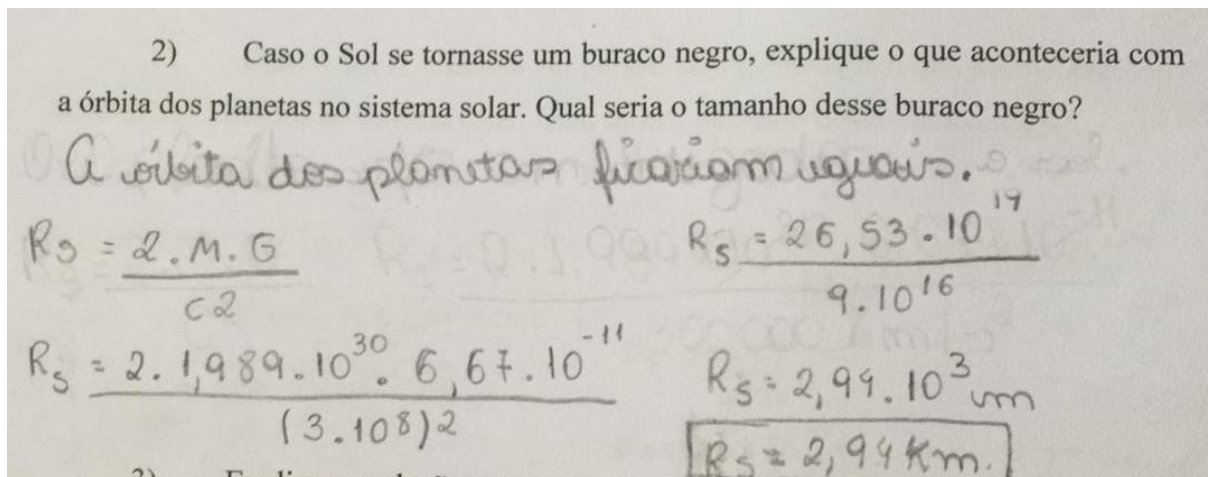 2) Caso o Sol se tornasse um buraco negro, explique o que aconteceria com
a órbita dos planetas no sistema solar. Qual seria o tamanho desse buraco negro?
A órbita dos planetas ficariam iguais.
Rs = 2.M.G
c2
Rs = 2. 1,989.10³⁰. 6,67.10⁻¹¹
(3.108)2
Rs = 26,53.10¹⁹
9.10¹⁶
Rs = 2,94.10³ m
Rs = 2,94 Km.